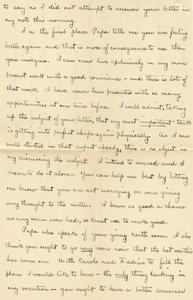 to say no I did not attempt to answer your letter in
my note this morning.
In the first place Papa tells me you are feeling
better again and that is more of consequence to me than
you imagine. I can now live exclusively in my own
present work with a good conscience – and there is lots of
that work. I have never been presented with so many
opportunities at one time before. I will admit, taking
up the subject of your letter, that my most important task
is getting into perfect shape again physically. As I am
well started in that aspect already, there is no object in
my discussing the subject. I intend to succeed and I
mean to do it alone. You can help me best by letting
me know that you are not worrying or even giving
any thought to the matter. I have as good a chance
as any man ever had, so trust me to make good.
Papa also speaks of your going north soon. I also
think you ought to go very soon now that the hot weather
has come on. With Carole and to fill the
place I would like to have – the only thing lacking in
my vacation – you ought to have a better summer